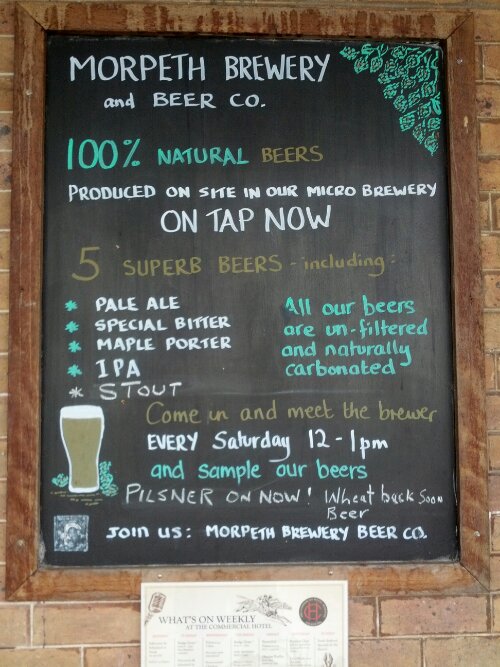 MORPETH BREWERY
and BEER CO.
100% NATURAL BEERS
PRODUCED ON SITE IN OUR MICRO BREWERY
ON TAP NOW
5 SUPERB BEERS - including:
* PALE ALE
* SPECIAL BITTER
* MAPLE PORTER
* IPA
* STOUT
All our beers
are un-filtered
and naturally
carbonated
Come in and meet the brewer
EVERY Saturday 12-1pm
and sample our beers
PILSNER ON NOW! Wheat back Soon
Beer
JOIN US: MORPETH BREWERY BEER CO.
WHAT'S ON WEEKLY
AT THE COMMERCIAL HOTEL